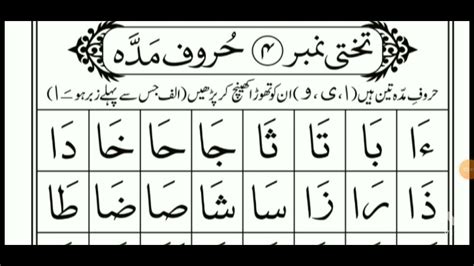 تختی نمبر ۴ حُروف مَدَّہ
حروفِ مدّہ تین ہیں (ا، ی، و) ان کو تھوڑا کھینچ کر پڑھیں (الف جس سے پہلے زبر ہو ـَ ا)
ءَا بَا تَا ثَا جَا حَا خَا دَا
ذَا رَا زَا سَا شَا صَا ضَا طَا